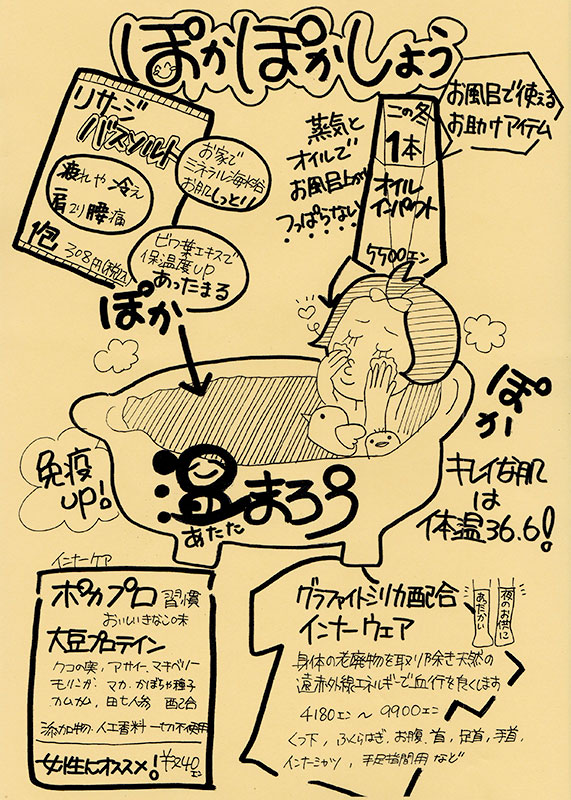 ぽかぽかしよう
リサージ
バスソルト
疲れや冷え
肩コリ腰痛
1包 308円(税込)
お家で
ミネラル海水浴
お肌しっとり
ビワ葉エキスで
保温度UP
あったまる
蒸気と
オイルで
お風呂上がり
つっぱらない
この冬
1本
オイル
インバウト
7500エン
お風呂で使える
お助けアイテム
ぽか
ぽか
免疫
UP!
温まろう
あたた
キレイな肌
は
体温36.6!
インナーケア
ポカプロ 習慣
おいしいきなこ味
大豆プロテイン
クコの実、アサイー、マキベリー
モリンガ、マカ、かぼちゃ種子
カムカム、田七人参 配合
添加物・人工香料 一切不使用
女性にオススメ! ¥3240エン
グラファイトシリカ配合
インナーウェア
夜のお供に
あたたかい
身体の老廃物を取り除き天然の
遠赤外線エネルギーで血行を良くします
4180エン〜9900エン
くつ下、ふくらはぎ、お腹、首、足首、手首、
インナーシャツ、手足指間用 など